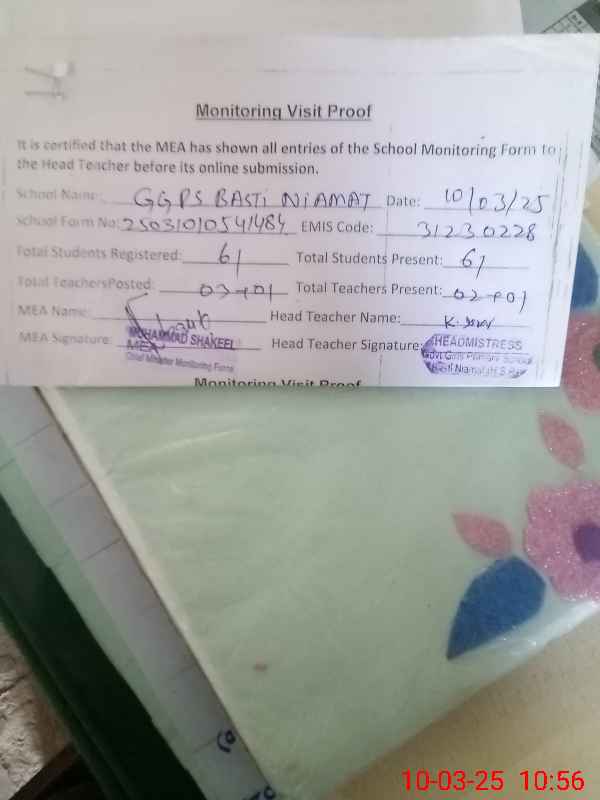 Monitoring Visit Proof
It is certified that the MEA has shown all entries of the School Monitoring Form to
the Head Teacher before its online submission.
School Name: GGPS BASTI NIAMAT Date: 10/03/25
School Form No: 25031010541484 EMIS Code: 31230228
Total Students Registered: 61 Total Students Present: 61
Total TeachersPosted: 03+01 Total Teachers Present: 02+01
MEA Name: Head Teacher Name:
MEA Signature: MOHAMMAD SHAKEEL Head Teacher Signature: HEADMISTRESS
MEA Govt. Girls Primary School
Chief Minister Monitoring Force Basti Niamat
Monitoring Visit Proof
10-03-25 10:56